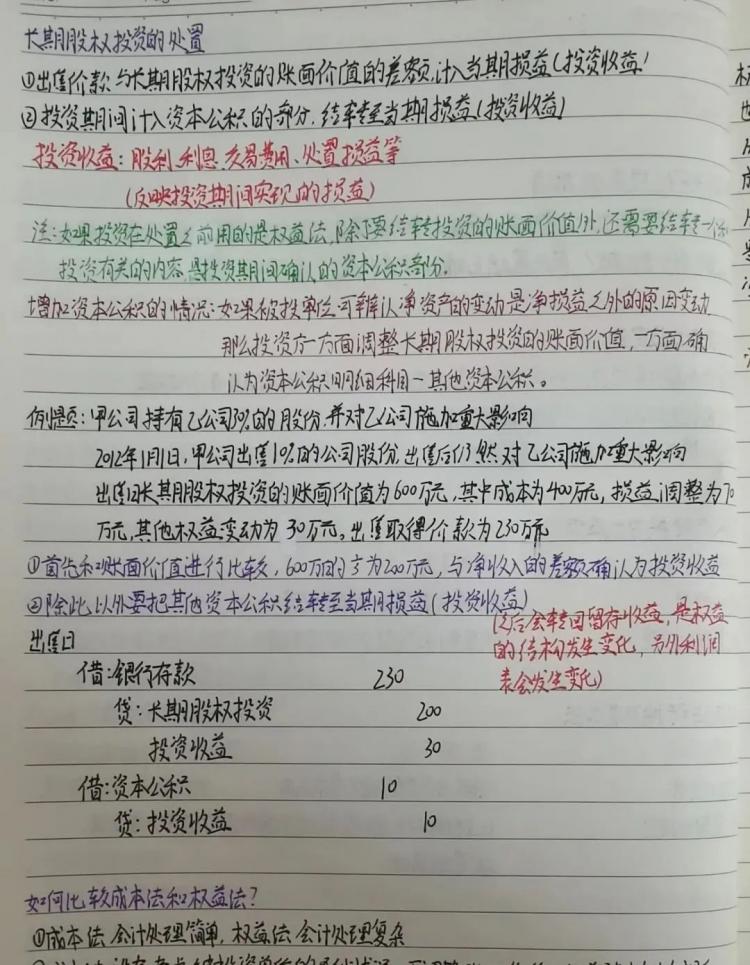 长期股权投资的处置
①出售价款与长期股权投资的账面价值的差额,计入当期损益(投资收益)
②投资期间计入资本公积的部分,结转至当期损益(投资收益)
投资收益:股利、利息、交易费用、处置损益等
(反映投资期间实现的损益)
注:如果投资在处置之前用的是权益法,除了要结转投资的账面价值外,还需要结转一个和
投资有关的内容,是投资期间确认的资本公积部分.
增加资本公积的情况:如果被投单位可辨认净资产的变动是净损益之外的原因变动
那么投资方一方面调整长期股权投资的账面价值,一方面确
认为资本公积明细科目-其他资本公积。
例题:甲公司持有乙公司30%的股份,并对乙公司施加重大影响
2012年1月1日,甲公司出售10%的公司股份,出售后仍然对乙公司施加重大影响
出售日长期股权投资的账面价值为600万元,其中成本为400万元,损益调整为70
万元,其他权益变动为30万元。出售取得价款为230万元
①首先和账面价值进行比较,600万的⅓为200万元,与净收入的差额确认为投资收益
②除此以外要把其他资本公积结转至当期损益(投资收益)
(②后会转回留存收益,是权益
的结构发生变化,另外利润
表会发生变化)
出售日
借:银行存款 230
贷:长期股权投资 200
投资收益 30
借:资本公积 10
贷:投资收益 10
如何比较成本法和权益法?
①成本法会计处理简单,权益法会计处理复杂